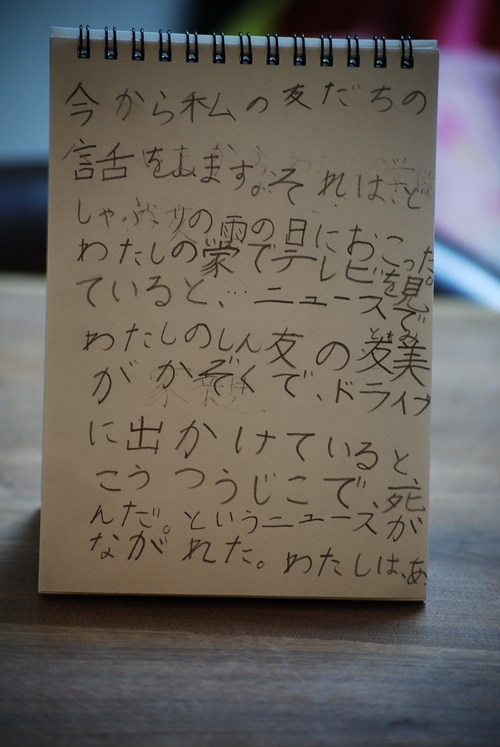 今から私の友だちの
話をします。それは、ど
しゃぶりの雨の日におこった。
わたしの家でテレビを見
ていると、…ニュースで
ともみ
わたしのしん友の友美
がかぞくで、ドライブ
に出かけていると、
こうつうじこで、死
んだ。というニュースが
ながれた。わたしは、あ